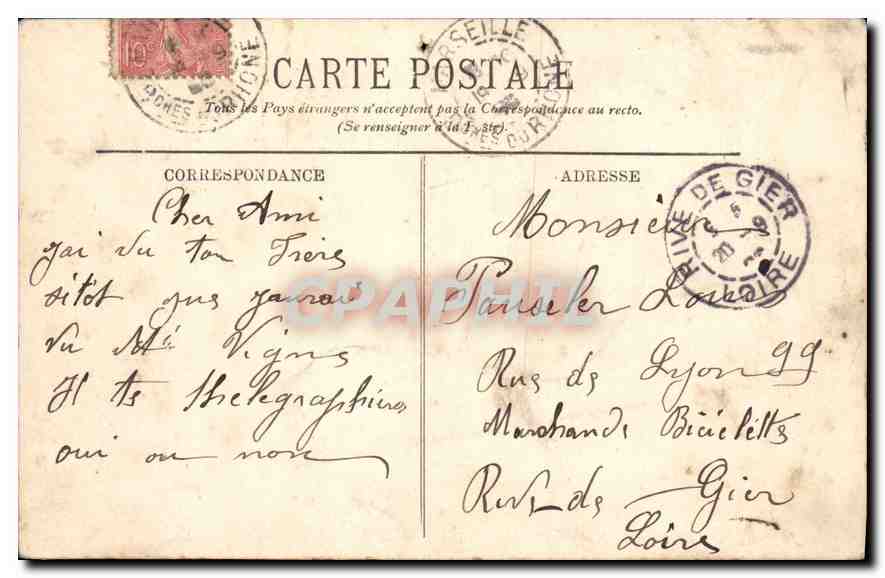 10c
MARSEILLE
BCHES DU RHONE
CARTE POSTALE
Tous les Pays étrangers n'acceptent pas la Correspondance au recto.
(Se renseigner à la Poste).
CORRESPONDANCE
Cher Ami
jai vu ton Frère
sitôt que jaurai
vu Mr Vigne
Il te thelegraphiera
oui ou non
ADRESSE
RIVE DE GIER
LOIRE
Monsieur
Louis
Rue de Lyon 99
Marchande Biciclette
Rive de Gier
Loire
CPAPHIL